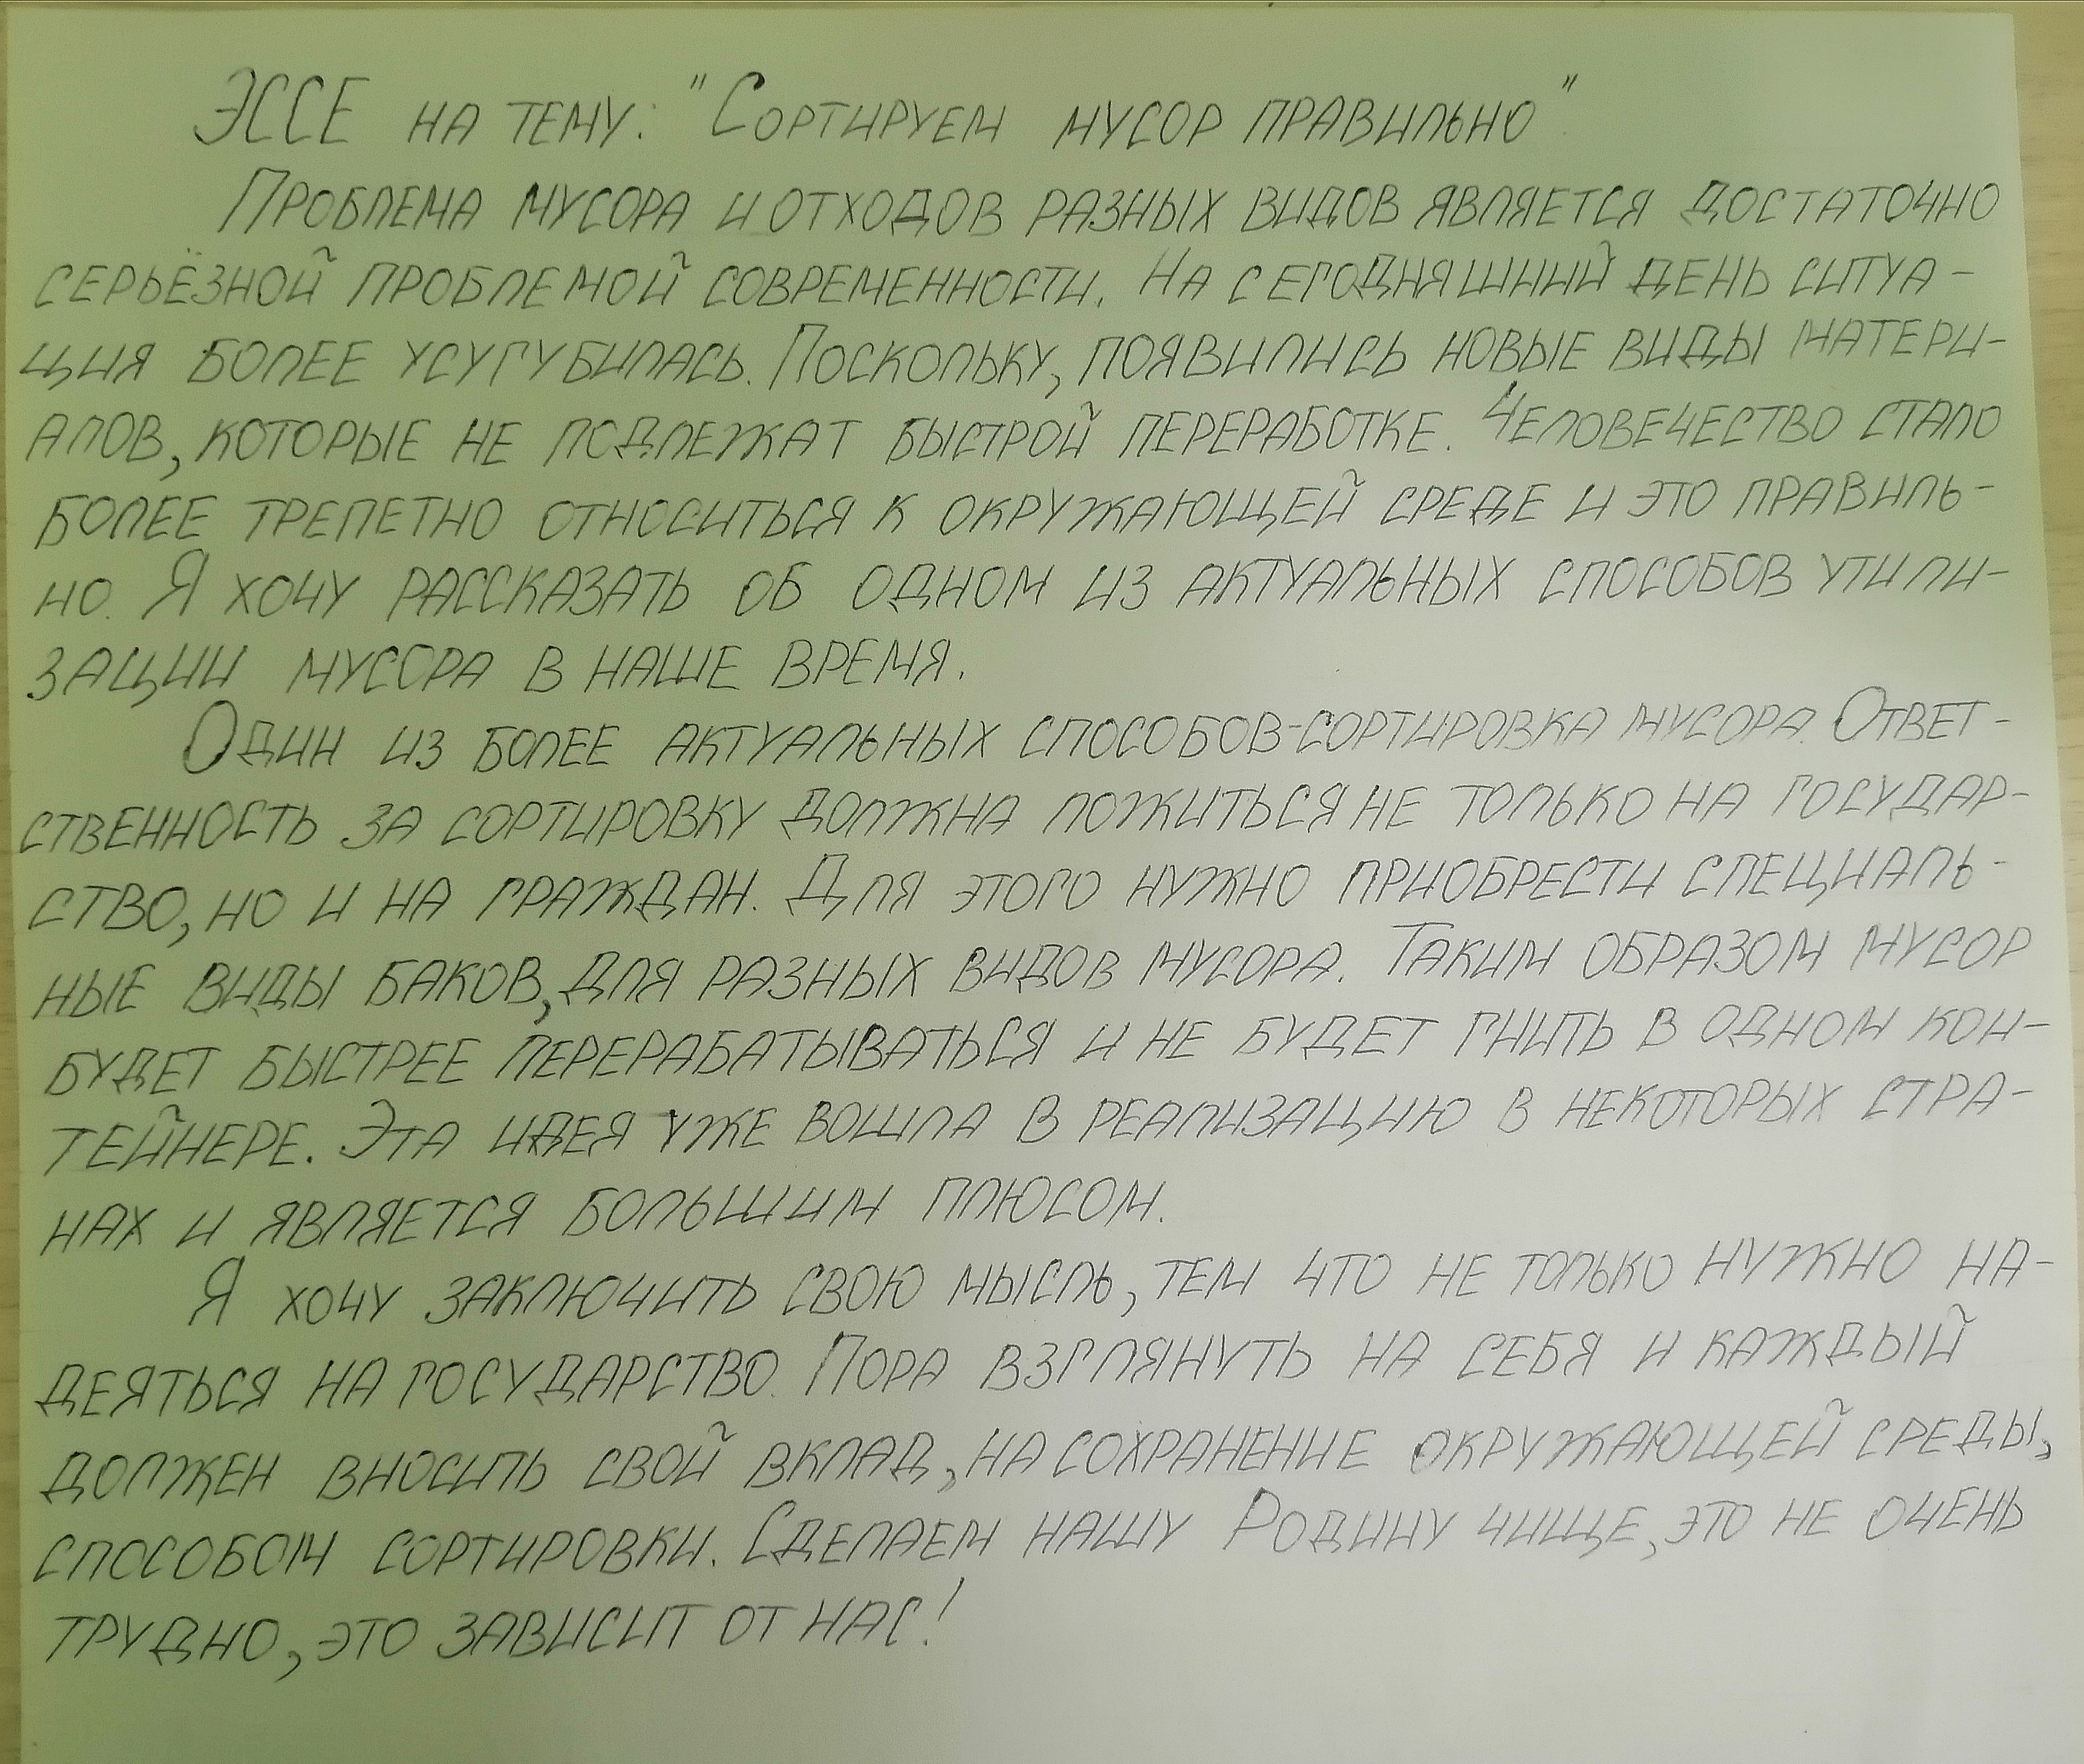 ЭССЕ НА ТЕМУ: "СОРТИРУЕМ МУСОР ПРАВИЛЬНО"
ПРОБЛЕМА МУСОРА И ОТХОДОВ РАЗНЫХ ВИДОВ ЯВЛЯЕТСЯ ДОСТАТОЧНО
СЕРЬЁЗНОЙ ПРОБЛЕМОЙ СОВРЕМЕННОСТИ. НА СЕГОДНЯШНИЙ ДЕНЬ СИТУА-
ЦИЯ БОЛЕЕ УСУГУБИЛАСЬ. ПОСКОЛЬКУ, ПОЯВИЛИСЬ НОВЫЕ ВИДЫ МАТЕРИ-
АЛОВ, КОТОРЫЕ НЕ ПОДЛЕЖАТ БЫСТРОЙ ПЕРЕРАБОТКЕ. ЧЕЛОВЕЧЕСТВО СТАЛО
БОЛЕЕ ТРЕПЕТНО ОТНОСИТЬСЯ К ОКРУЖАЮЩЕЙ СРЕДЕ И ЭТО ПРАВИЛЬ-
НО. Я ХОЧУ РАССКАЗАТЬ ОБ ОДНОМ ИЗ АКТУАЛЬНЫХ СПОСОБОВ УТИЛИ-
ЗАЦИИ МУСОРА В НАШЕ ВРЕМЯ.
ОДИН ИЗ БОЛЕЕ АКТУАЛЬНЫХ СПОСОБОВ-СОРТИРОВКА МУСОРА. ОТВЕТ-
СТВЕННОСТЬ ЗА СОРТИРОВКУ ДОЛЖНА ЛОЖИТЬСЯ НЕ ТОЛЬКО НА ГОСУДАР-
СТВО, НО И НА ГРАЖДАН. ДЛЯ ЭТОГО НУЖНО ПРИОБРЕСТИ СПЕЦИАЛЬ-
НЫЕ ВИДЫ БАКОВ, ДЛЯ РАЗНЫХ ВИДОВ МУСОРА. ТАКИМ ОБРАЗОМ МУСОР
БУДЕТ БЫСТРЕЕ ПЕРЕРАБАТЫВАТЬСЯ И НЕ БУДЕТ ГНИТЬ В ОДНОМ КОН-
ТЕЙНЕРЕ. ЭТА ИДЕЯ УЖЕ ВОШЛА В РЕАЛИЗАЦИЮ В НЕКОТОРЫХ СТРА-
НАХ И ЯВЛЯЕТСЯ БОЛЬШИМ ПЛЮСОМ.
Я ХОЧУ ЗАКЛЮЧИТЬ СВОЮ МЫСЛЬ, ТЕМ ЧТО НЕ ТОЛЬКО НУЖНО НА-
ДЕЯТЬСЯ НА ГОСУДАРСТВО. ПОРА ВЗГЛЯНУТЬ НА СЕБЯ И КАЖДЫЙ
ДОЛЖЕН ВНОСИТЬ СВОЙ ВКЛАД, НА СОХРАНЕНИЕ ОКРУЖАЮЩЕЙ СРЕДЫ,
СПОСОБОМ СОРТИРОВКИ. СДЕЛАЕМ НАШУ РОДИНУ ЧИЩЕ, ЭТО НЕ ОЧЕНЬ
ТРУДНО, ЭТО ЗАВИСИТ ОТ НАС!